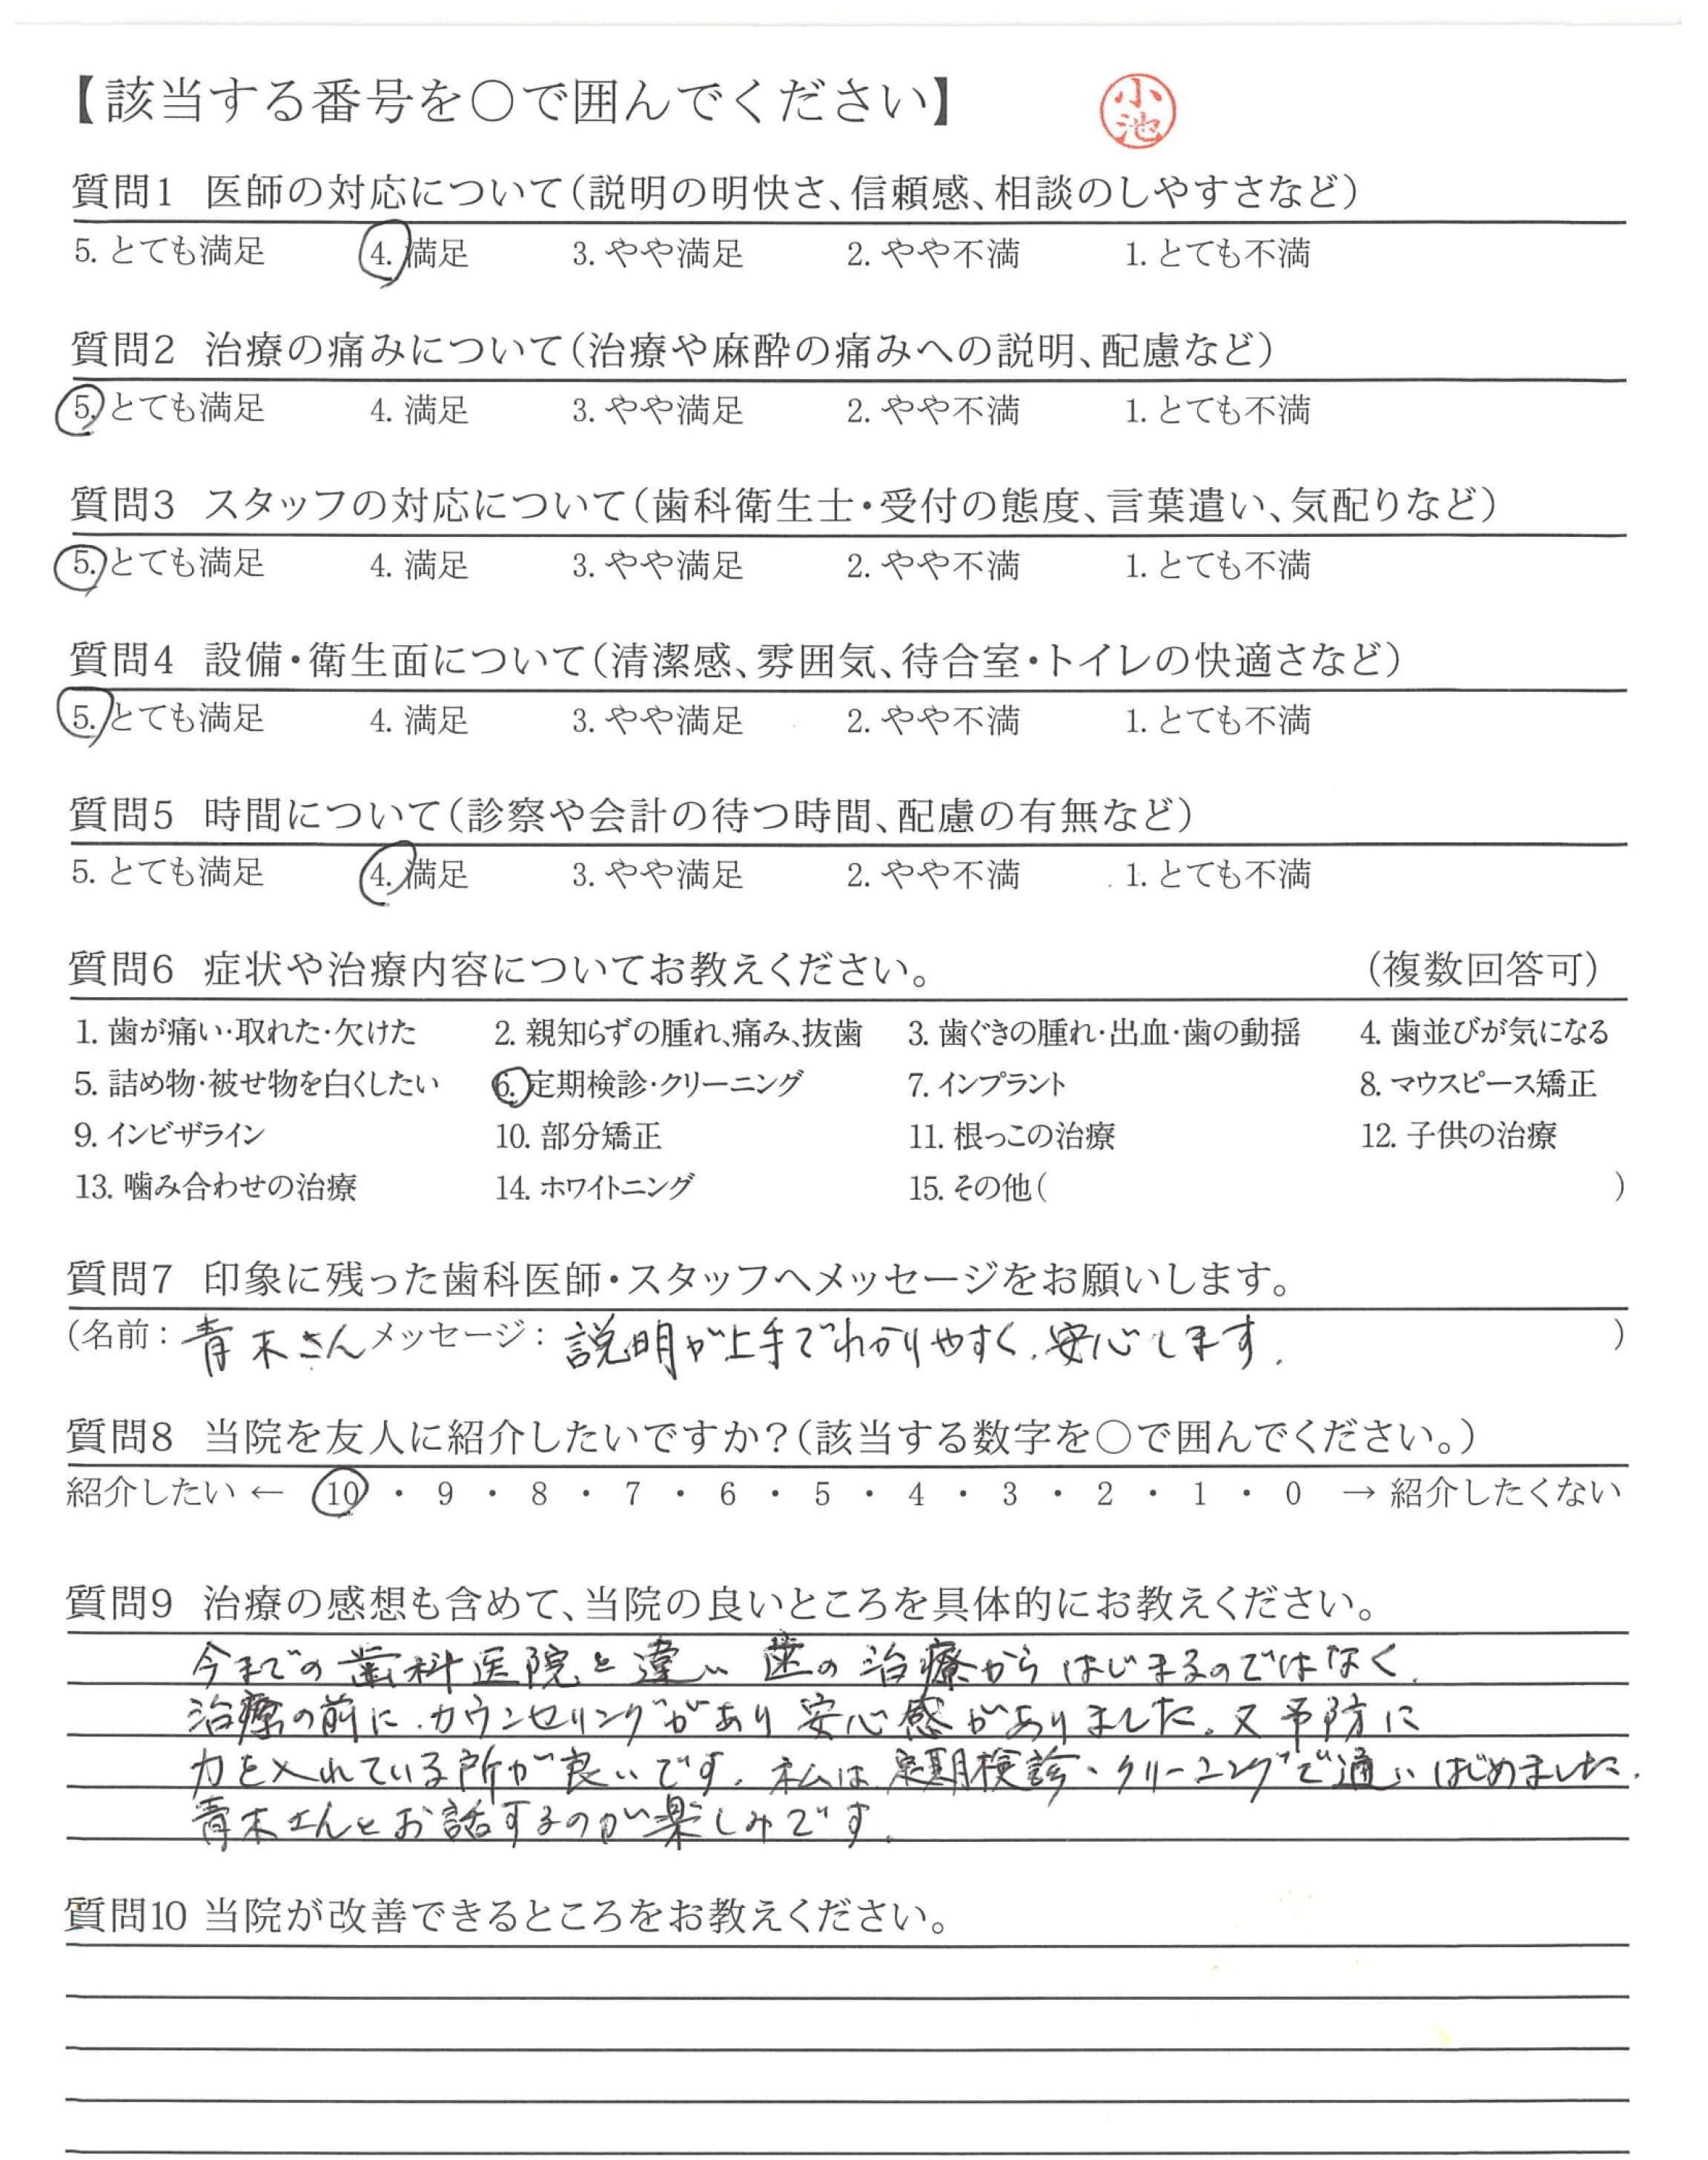 【該当する番号を○で囲んでください】 小池
質問1 医師の対応について(説明の明快さ、信頼感、相談のしやすさなど)
5. とても満足 4. 満足 3. やや満足 2. やや不満 1. とても不満
質問2 治療の痛みについて(治療や麻酔の痛みへの説明、配慮など)
5. とても満足 4. 満足 3. やや満足 2. やや不満 1. とても不満
質問3 スタッフの対応について(歯科衛生士・受付の態度、言葉遣い、気配りなど)
5. とても満足 4. 満足 3. やや満足 2. やや不満 1. とても不満
質問4 設備・衛生面について(清潔感、雰囲気、待合室・トイレの快適さなど)
5. とても満足 4. 満足 3. やや満足 2. やや不満 1. とても不満
質問5 時間について(診察や会計の待つ時間、配慮の有無など)
5. とても満足 4. 満足 3. やや満足 2. やや不満 1. とても不満
質問6 症状や治療内容についてお教えください。 (複数回答可)
1. 歯が痛い・取れた・欠けた 2. 親知らずの腫れ、痛み、抜歯 3. 歯ぐきの腫れ・出血・歯の動揺 4. 歯並びが気になる
5. 詰め物・被せ物を白くしたい 6. 定期検診・クリーニング 7. インプラント 8. マウスピース矯正
9. インビザライン 10. 部分矯正 11. 根っこの治療 12. 子供の治療
13. 噛み合わせの治療 14. ホワイトニング 15. その他( )
質問7 印象に残った歯科医師・スタッフへメッセージをお願いします。
(名前: 青木さん メッセージ: 説明が上手でわかりやすく、安心します。 )
質問8 当院を友人に紹介したいですか?(該当する数字を○で囲んでください。)
紹介したい ← 10 ・ 9 ・ 8 ・ 7 ・ 6 ・ 5 ・ 4 ・ 3 ・ 2 ・ 1 ・ 0 → 紹介したくない
質問9 治療の感想も含めて、当院の良いところを具体的にお教えください。
今までの歯科医院と違い 歯の治療からはじまるのではなく、
治療の前に、カウンセリングがあり 安心感がありました。又予防に
力を入れている所が良いです。私は、定期検診・クリーニングで通いはじめました。
青木さんとお話するのが楽しみです。
質問10 当院が改善できるところをお教えください。